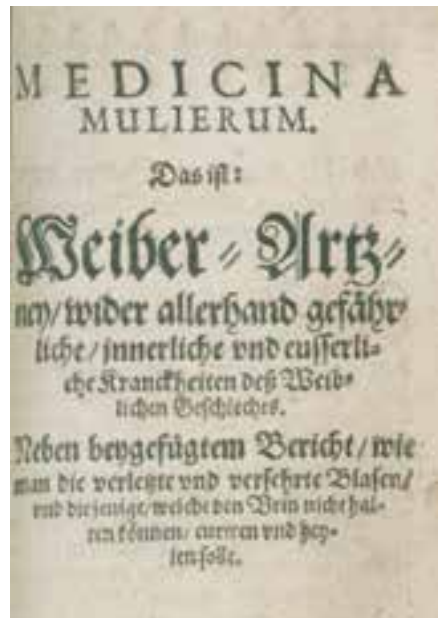 MEDICINA
MULIERUM.
Das ist:
Weiber-Artz-
ney/wider allerhand gefähr-
liche/innerliche vnd eusserli-
che Kranckheiten deß Weib-
lichen Geschlechts.
Neben beygefügtem Bericht/wie
man die verletzte vnd versehrte Blasen/
vnd diejenige/welche den Vrin nicht hal-
ten können/curiren vnd hey-
len solle.